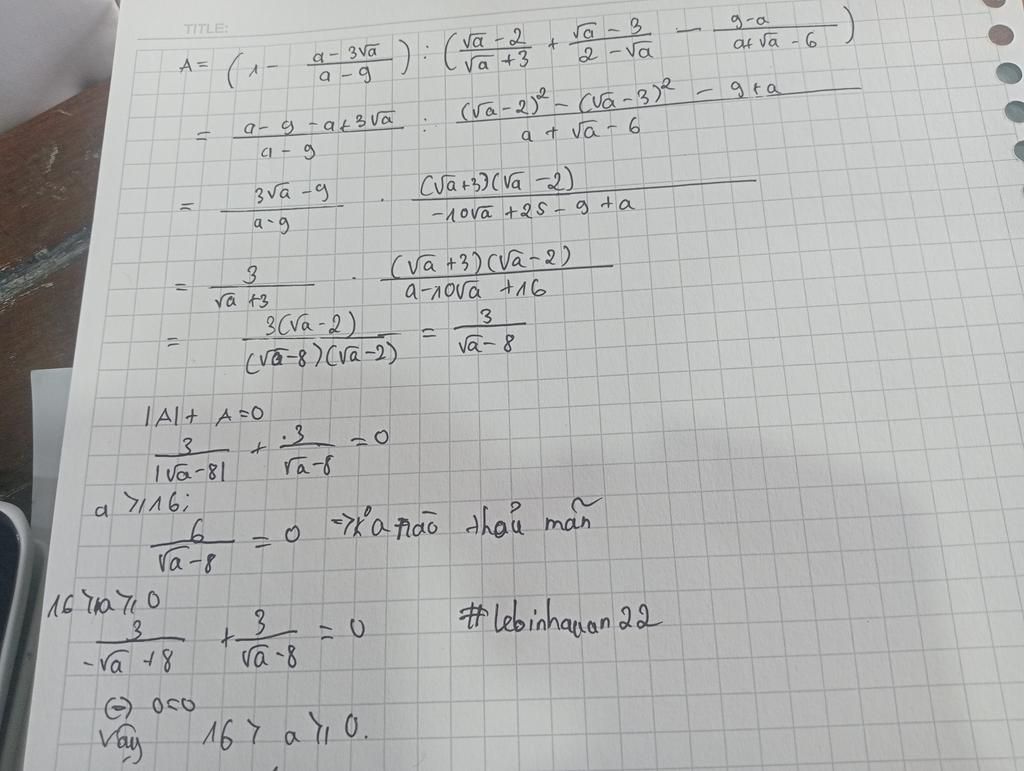 TITLE:
A = (1 - (a - 3√a)/(a - 9)) : ((√a - 2)/(√a + 3) + (√a - 3)/(2 - √a) - (9 - a)/(a + √a - 6))
= (a - 9 - a + 3√a)/(a - 9) : ((√a - 2)² - (√a - 3)² - 9 + a)/(a + √a - 6)
= (3√a - 9)/(a - 9) · ((√a + 3)(√a - 2))/(-10√a + 25 - 9 + a)
= 3/(√a + 3) · ((√a + 3)(√a - 2))/(a - 10√a + 16)
= (3(√a - 2))/((√a - 8)(√a - 2)) = 3/(√a - 8)
|A| + A = 0
3/|√a - 8| + 3/(√a - 8) = 0
a ⩾ 16;
6/(√a - 8) = 0 => a nào thoả mãn
16 ⩾ a ⩾ 0
3/(-√a + 8) + 3/(√a - 8) = 0 #lebinhauan22
⇔ 0=0
Vậy 16 > a ⩾ 0.